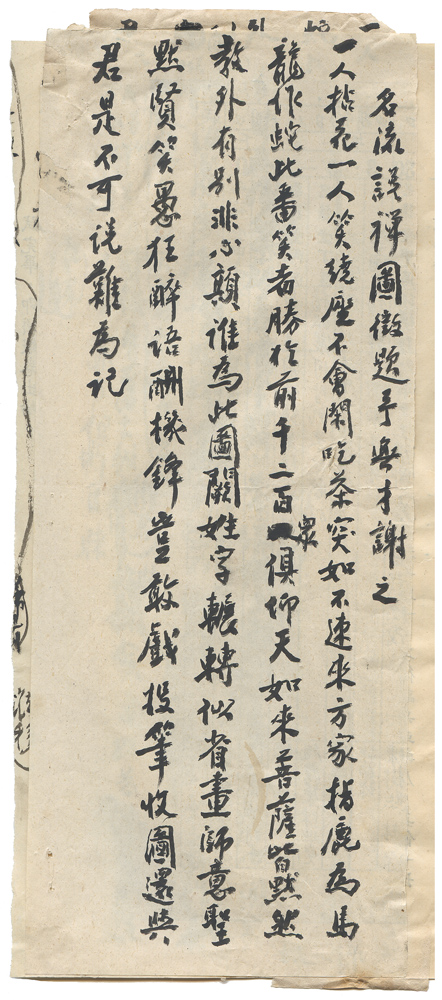 名流說禪圖徵題予無才謝之
一人拈花一人笑繞座不會閑吃茶突如不速来方家指鹿為馬
龍作蛇此番笑者勝於前千二百衆俱仰天如来菩薩皆默然
教外有別非心顛誰為此圖闕姓字輾轉似省畫師意聖
點賢笑愚狂醉語酬機鋒豈敢戲投筆收圖還與
君是不可说難為記